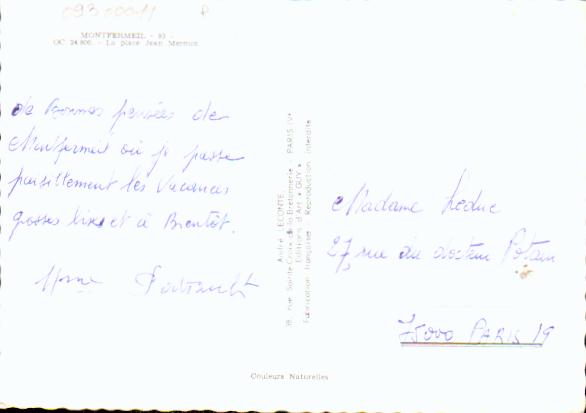 09300011
MONTFERMEIL - 93 -
OC. 24.806. - La place Jean Mermoz
de Bonnes pensées de
Montfermeil où je passe
paisiblement les Vacances
grosses bises et à Bientôt.
Mme
André LECONTE
38, rue Sainte-Croix-de-la-Bretonnerie - PARIS IVe
Editions d'Art « GUY »
Fabrication française - Reproduction interdite
Madame Leduc
27, rue du docteur Potain
75000 PARIS 19
Couleurs Naturelles